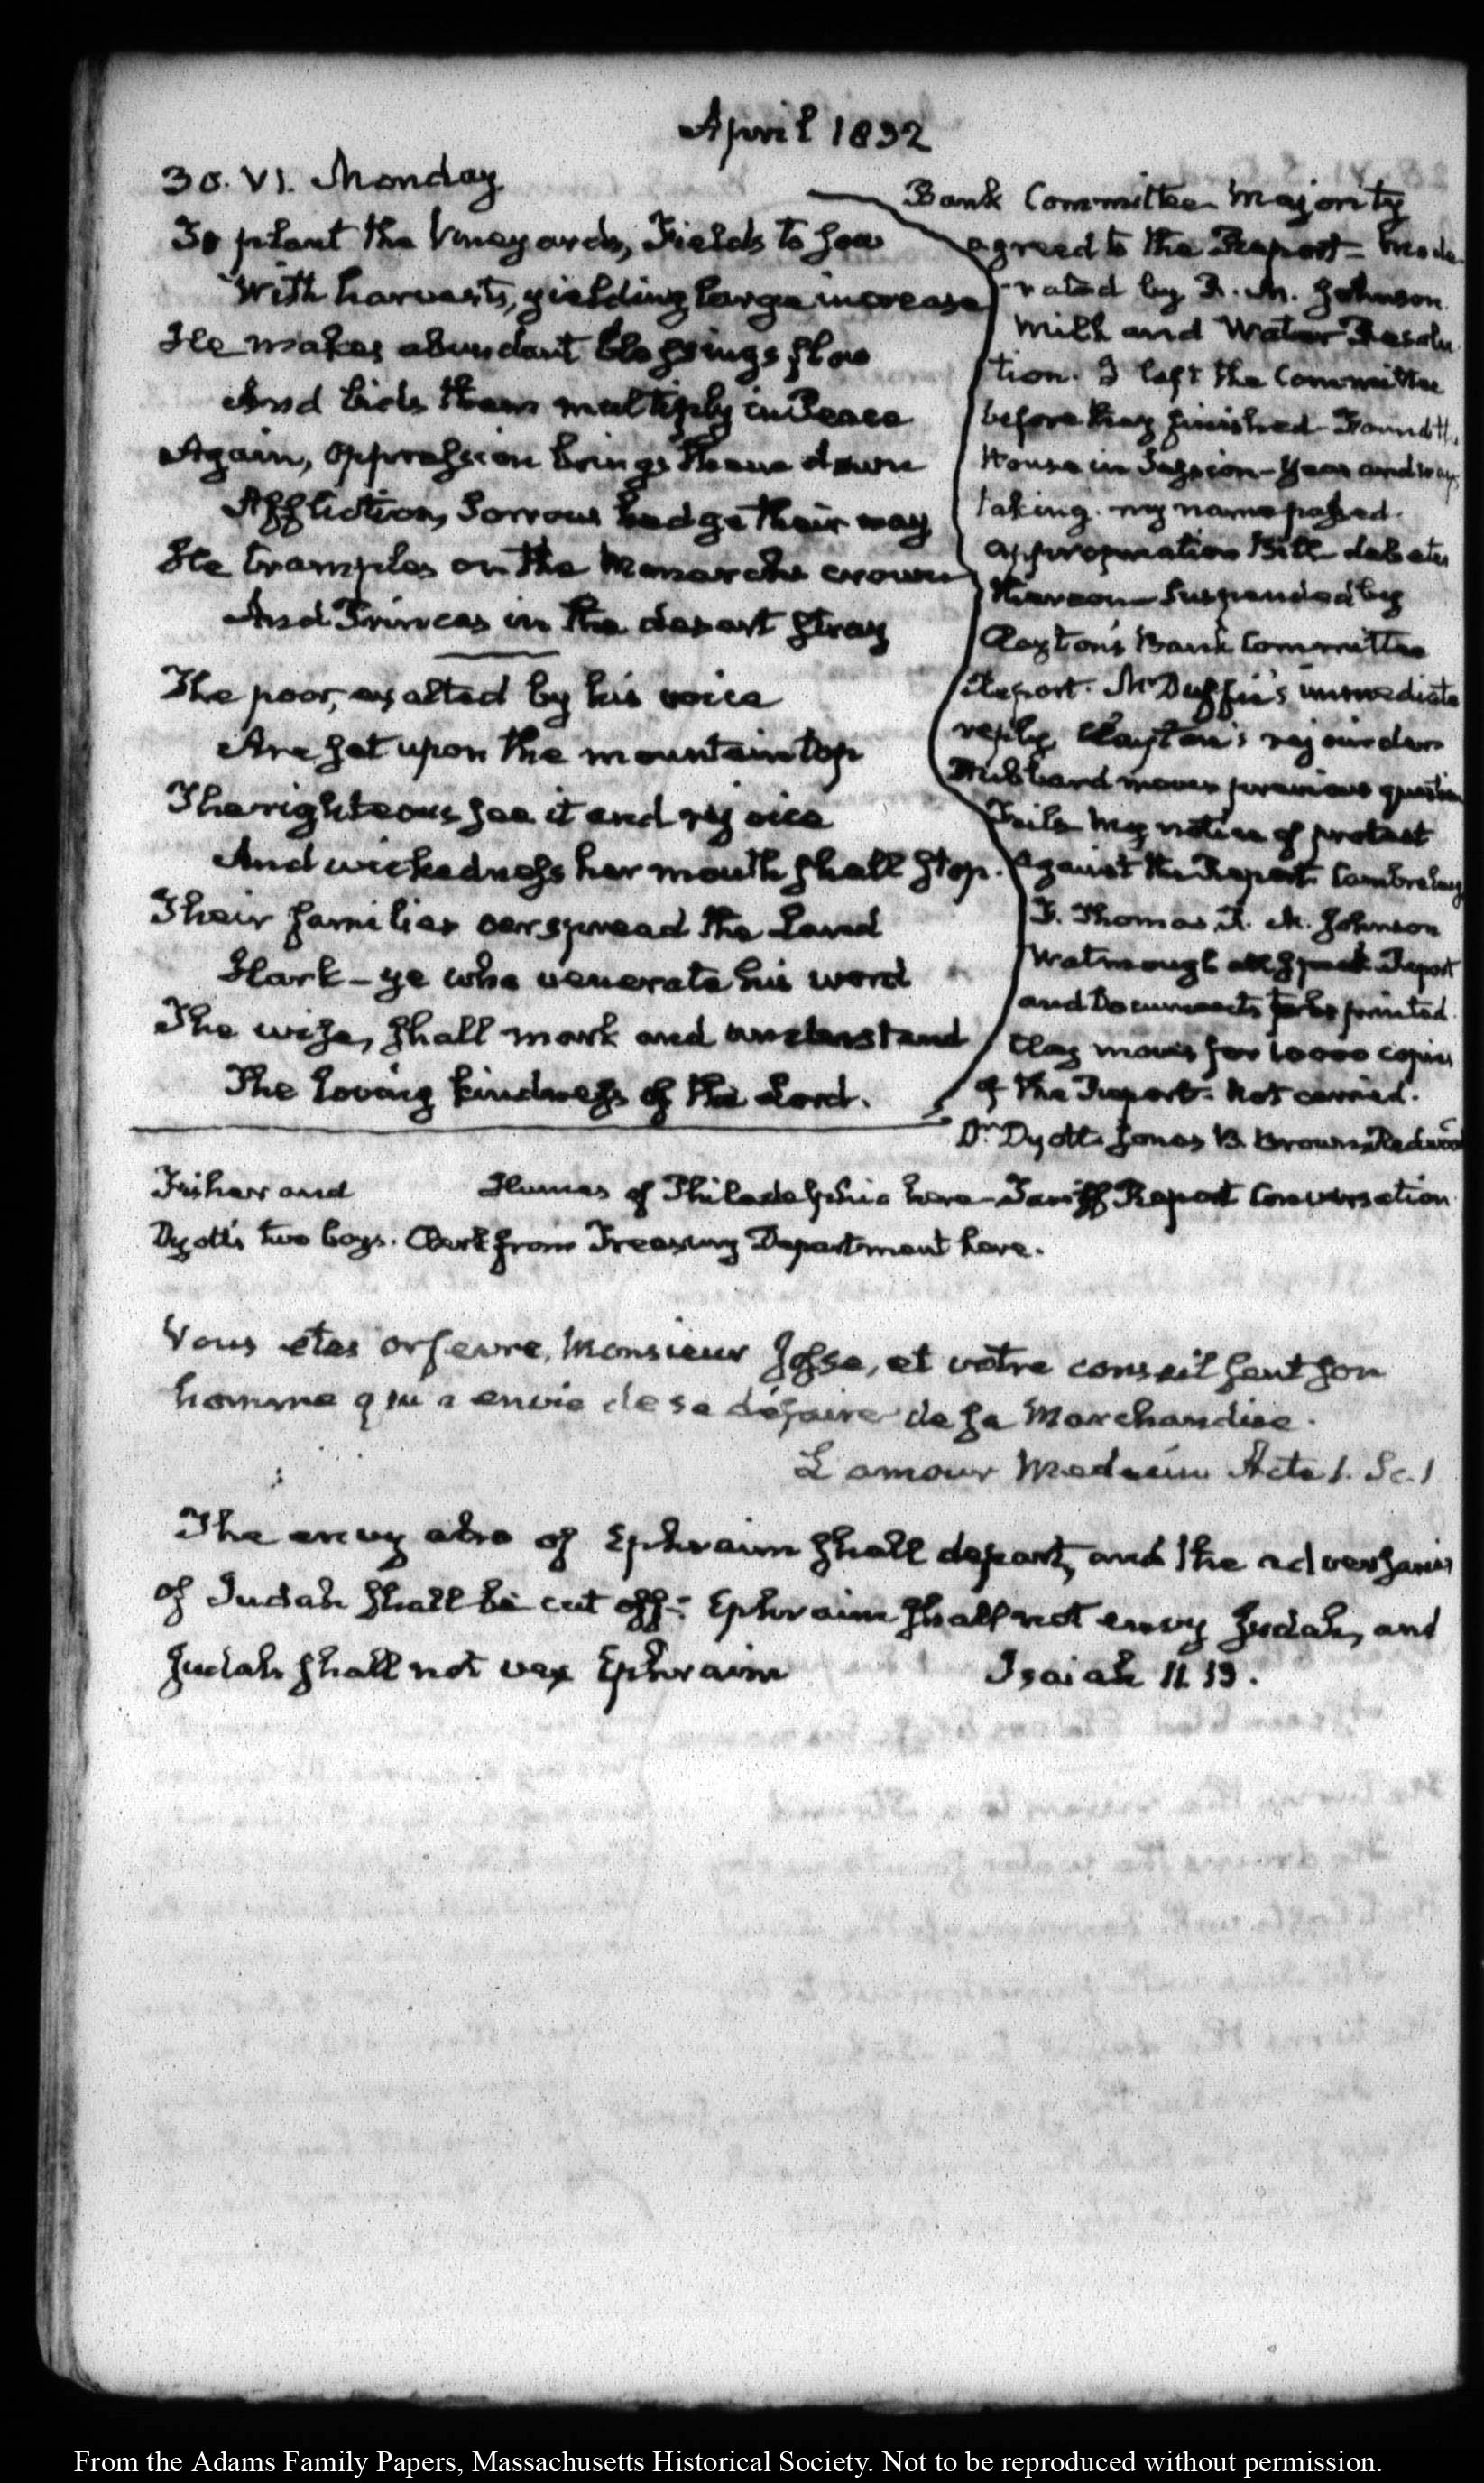 April 1832
30. VI. Monday
To plant the Vineyards, Fields to sow
With harvests, yielding large increase
He makes abundant blessings flow
And bids them multiply in Peace
Again, oppression brings them down
Affliction, Sorrow hedge their way
He tramples on the Monarchs crown
And Princes in the desert stray
The poor, exalted by his voice
Are set upon the mountain top
The righteous see it and rejoice
And wickedness her mouth shall stop.
Their families oerspread the Land
Hark - ye who venerate his word
The wise, shall mark and understand
The loving kindness of the Lord.
Bank Committee Majority
agreed to the Report - mode
-rated by R. M. Johnson
Milk and Water Resolu
tion. I left the Committee
before they finished - Found the
House in Session - Yeas and nays
taking. my name passed.
appropriation Bill debate
thereon - suspended by
Clayton's Bank Committee
Report. McDuffie's immediate
reply Clayton's rejoinder
Hubbard moves previous question
Fails my notice of protest
against the Report Cambreleng
F. Thomas R. M. Johnson
Watmough all speak Report
and Documents to be printed.
Clay moves for 10000 copies
of the Report - Not carried.
Dr. Dyott. Jones B. Brown Redwood
Fisher and Humes of Philadelphia here - Tariff Report Conversation
Dyott's two boys. Clerk from Treasury Department here.
Vous etes orfevre, Monsieur Josse, et votre conseil sent son
homme qui a envie de se défaire de sa Marchandise.
L'amour Medecin Acte 1. Sc. 1
The envy also of Ephraim shall depart, and the adversaries
of Judah shall be cut off: Ephraim shall not envy Judah, and
Judah shall not vex Ephraim Isaiah 11. 13.
From the Adams Family Papers, Massachusetts Historical Society. Not to be reproduced without permission.